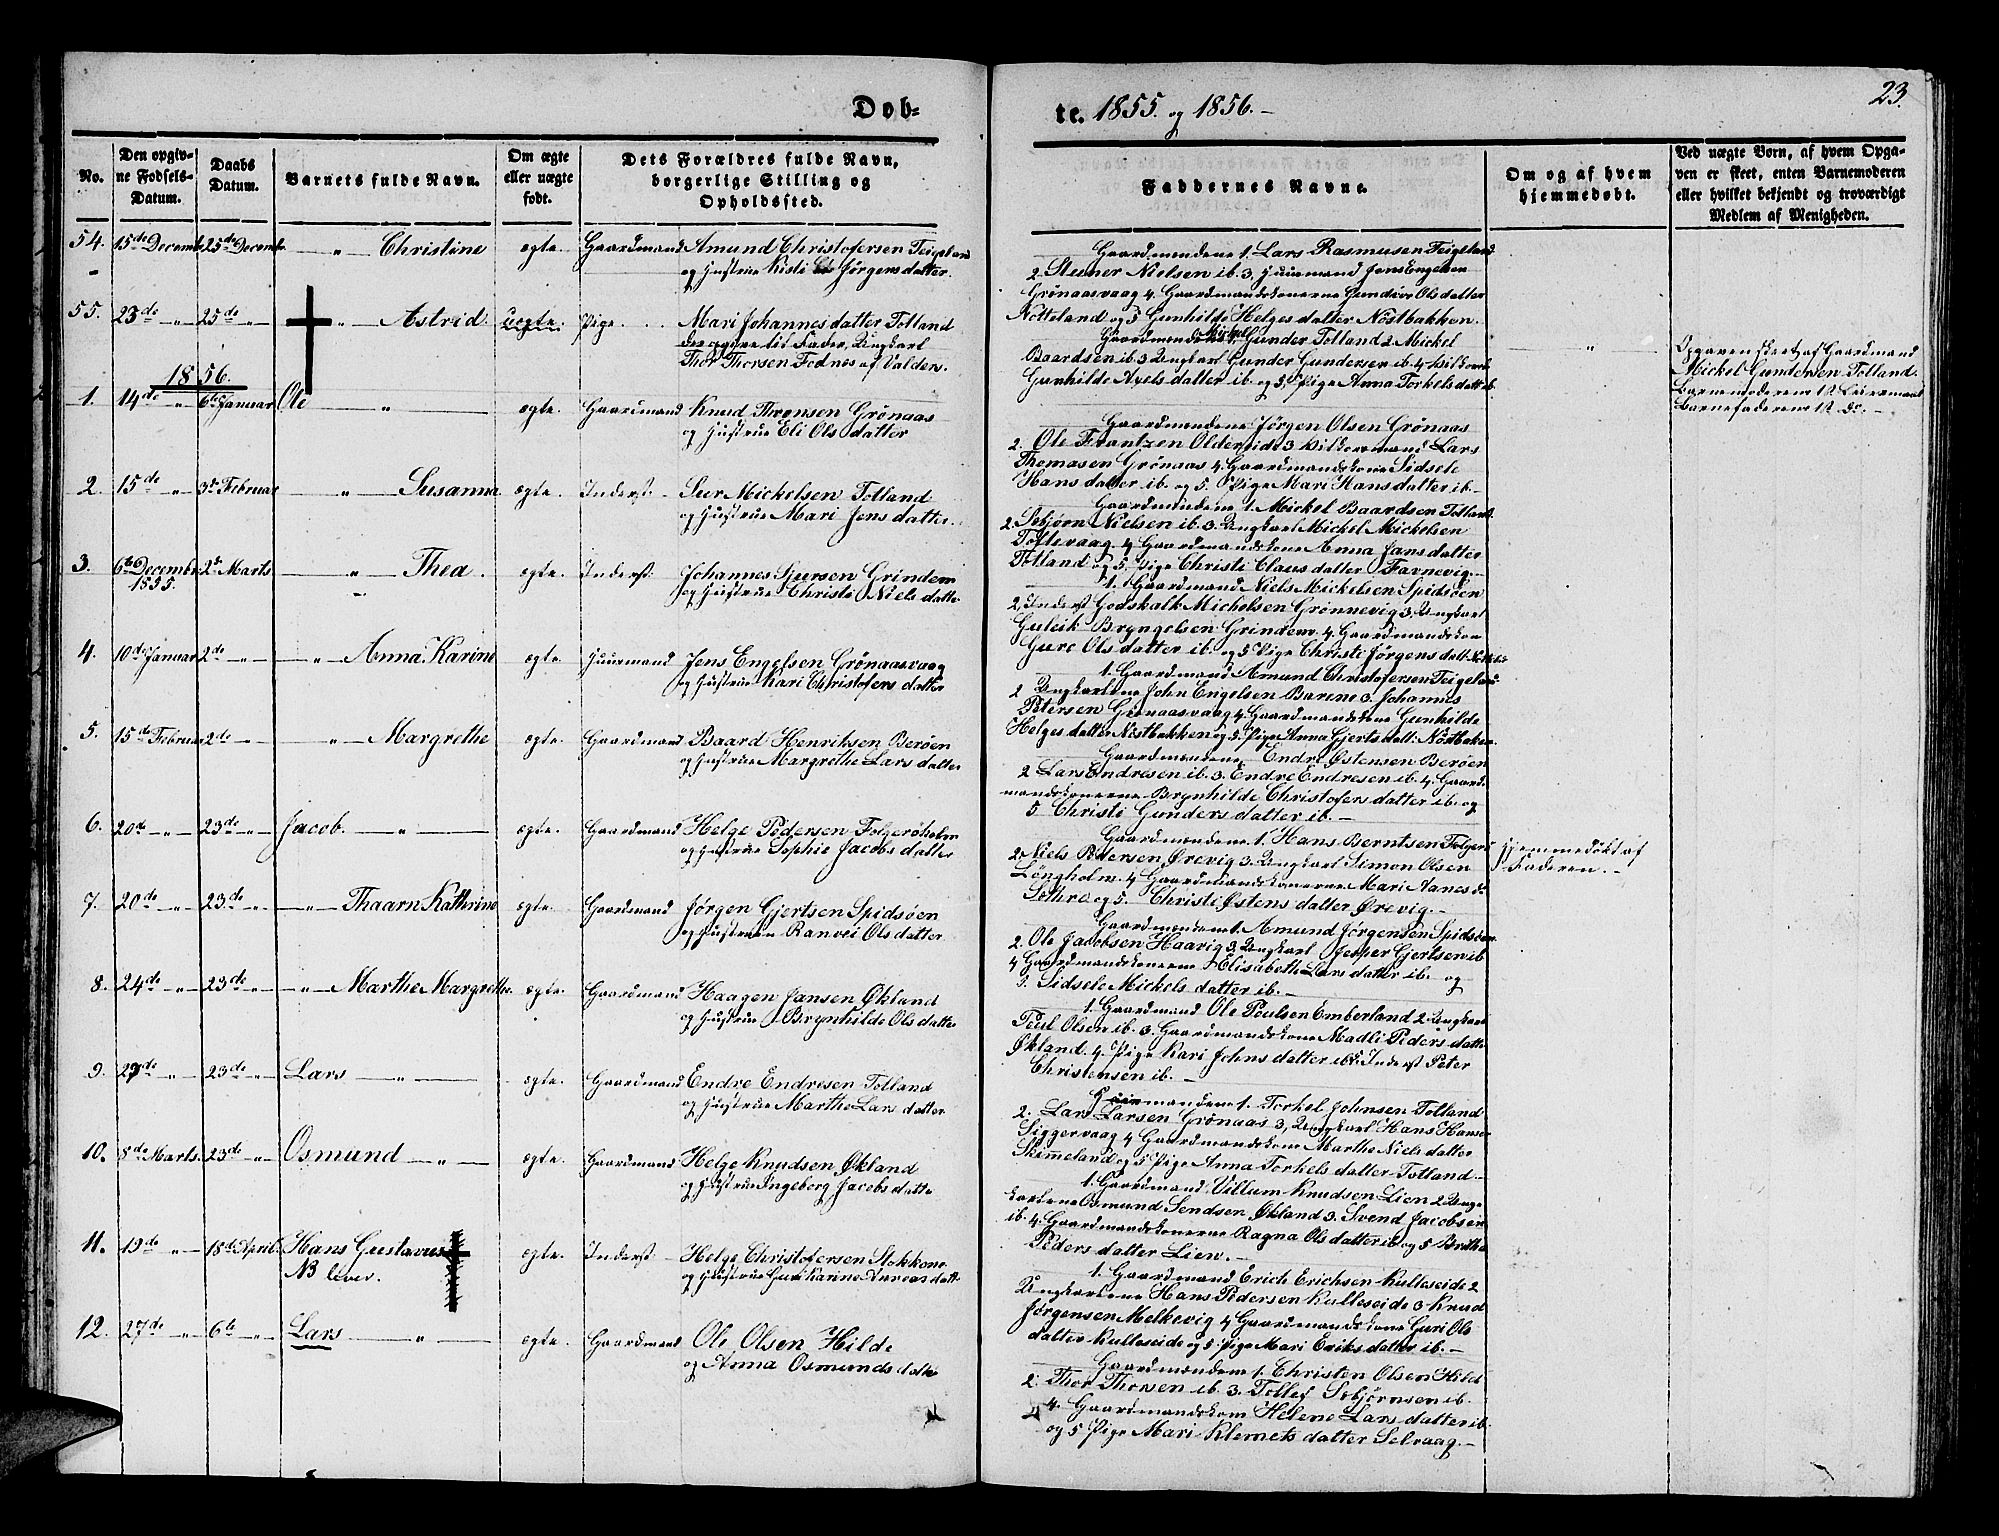 23.
Døb-
te. 1855. og 1856. -
No.
Den opgiv-
ne Fødsels-
Datum.
Daabs
Datum.
Barnets fulde Navn.
Om ægte
eller uægte
født.
Dets Forældres fulde Navn,
borgerlige Stilling og
Opholdssted.
Faddernes Navne.
Om og af hvem
hjemmedøbt.
Ved uægte Born, af hvem Opga-
ven er skeet, enten Barnemoderen
eller hvilket bekjendt og troværdigt
Medlem af Menigheden.
54. 15de Decembr 25de Decembr " Christine ægte. Gaardmand Amund Christofersen Teigeland
og Hustrue Kisti Jørgensdatter.
Gaardmændene 1. Lars Rasmusen Teigeland
2 Steiner Nielsen ib. 3, Huusmand Jens Engelsen
Grönaasvaag 4. Gaardmandskonerne Gundvor Olsdatter
Notteland og 5 Gunhilde Helgesdatter Nöstbakken.
55. 23de " 25de " " Astrid uægte. Pige Mari Johannesdatter Totland
der opgive til Fader, Ungkarl
Thor Thorsen Fodnes af Valders.
Gaardmændene 1. Mickel Gunder Totland 2 Mickel
Baardsen ib 3 Ungkarl Gunder Gundersen ib. 4
Gunhilde Axelsdatter ib. og 5, Pige Anna Torkelsdatter ib.
"
Opgaven skeet af Gaardmand
Mickel Gundersen Totland.
Barnemoderens 1st Leiermaal
Barnefaderens 1st do. -
1856.
1. 14de " 6te Januar Ole " ægte. Gaardmand Knud Thronsen Grönaas
og Hustrue Eli Olsdatter
Gaardmændene Jörgen Olsen Grönaas
2. Ole Frantzen Oldereide 3 Lars
Thomasen Grönaas 4. Gaardmandskone Sidsele
Hansdatter ib. og 5. Pige Mari Hansdatter ib. -
2. 15de " 3de Februar " Susanna ægte. Inderst Siur Mickelsen Totland
og Hustrue Mari Jensdatter.
Gaardmændene 1. Mickel Baardsen Totland
2. Sebjörn Nielsen ib. 3. Ungkarl Mickel Mickelsen
Toftevaag. 4 Gaardmandskone Anna Jansdatter
Totland og 5. Pige Christi Clausdatter Favnevig. -
3. 6te Decembr 1855. 2de Marts " Thea. ægte. Inderst Johannes Sjursen Grindem
og Hustrue Christi Nielsdatter
1. Gaardmand Niels Mickelsen Spidsöen
2, Inderst Godskalk Michelsen Grönnevig 3, Ungkarl
Guleik Bryngelsen Grindem. 4. Gaardmandskone
Gure Olsdatter ib. og 5 Pige Christi Jörgensdatt.
4. 10de Januar 2de " " Anna Karine ægte. Huusmand Jens Engelsen Grönaasvaag
og Hustrue Kari Christofersdatter
1. Gaardmand Amund Christofersen Teigeland
2 Ungkarlene John Engelsen Barene 3. Johannes
Petersen Grönaasvaag 4. Gaardmandskone Gunhilde
Helgesdatter Nöstbakken og 5. Pige Anna Gjertsdatt: Nöstbaken
5. 15de Februar 2de " " Margrethe ægte. Gaardmand Baard Henriksen Beröen
og Hustrue Margrethe Larsdatter
Gaardmændene Endre Østensen Beröen
2 Lars Endresen ib. 3. Endre Endresen ib. 4. Gaard-
mandskonerne Brynhilde Christofersdatter ib. og
5 Christi Gundersdatter ib. -
6. 20de " 23de " Jacob. " ægte. Gaardmand Helge Pedersen Folgeröholm
og Hustrue Sophie Jacobsdatter
Gaardmændene 1. Hans Berntsen Folgerö
2. Niels Petersen Ørevig 3. Ungkarl Simon Olsen
Longholm. 4 Gaardmandskonerne Mari Aanesd.
Sothra og 5. Christi Østensdatter Ørevig. -
Hjemmedøbt af
Faderen. -
7. 20de " 23de " " Thaarn Kathrine ægte. Gaardmand Jørgen Gjertsen Spidsöen
og Hustrue Ranvei Olsdatter
Gaardmændene 1. Amund Jörgensen Spidsöen
2. Ole Jacobsen Haavig 3, Ungkarl Jesper Gjertsen ib
4 Gaardmandskonerne Elisabeth Larsdatter ib. og
5. Sidsele Mickelsdatter ib. -
8. 24de " 23de " " Marthe Margrethe. ægte. Gaardmand Haagen Jansen Økland
og Hustrue Brynhilde Olsdatter
1. Gaardmand Ole Poulsen Emberland 2 Ungkarl
Poul Olsen ib. 3. Gaardmandskone Madli Pedersdatter
Økland. 4. Pige Kari Johnsdatter ib 5. Inderst Peter
Christensen ib. -
9. 27de " 23de " Lars " ægte. Gaardmand Endre Endresen Totland
og Hustrue Marthe Larsdatter
Huusmændene 1. Torkel Johnsen Totland
2. Lars Larsen Grönaas 3, Ungkarl Hans Hansen
Siggervaag 4 Gaardmandskone Marthe Nielsdatter
Skimmeland og 5 Pige Anna Torkelsdatter Totland. -
10. 8de Marts. 23de " Osmund " ægte. Gaardmand Helge Knudsen Økland
og Hustrue Ingeborg Jacobsdatter
1. Gaardmand Villum Knudsen Lien 2 Ung-
karlene Osmund Sendsen Økland 3. Svend Jacobsen
ib. 4. Gaardmandskonerne Ragna Olsdatter ib og 5 Britha
Pedersdatter Lien. -
11. 19de " 18de April. Hans Gustavus ægte. Inderst Helge Christofersen Stokkone
NB lever. og Hustrue Guri Karine Anneasdatt
1. Gaardmand Erich Erichsen Kulleseide 2
Ungkarlene Hans Pedersen Kulleseide 3 Knud
Jørgensen Melkevig 4 Gaardmandskone Guri Ols-
datter Kulleseide og 5. Pige Mari Eriksdatter ib. -
12. 27de " 6te " Lars " ægte. Gaardmand Ole Olsen Hilde
og Anna Osmundsdatter
Gaardmændene 1. Christen Olsen Hilde
2. Thor Thorsen ib. 3. Tollef Sebjörnsen ib.
4. Gaardmandskone Helene Larsdatter ib.
og 5 Pige Mari Klemetsdatter Selvaag. -